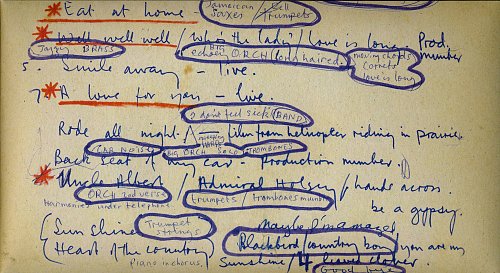 * Eat at home - Jamaican / Sell saxes / Trumpets
* Well well well / Who's the lady / Love is long Prod. number
Jazzy BRASS echoed BIG ORCH (long haired. moving chords cornets love is long
5. Smile away - live.
7. * A love for you - live.
I don't feel sick (BAND)
Ride all night. / film from helicopter riding in prairie.
CAR NOISES BIG ORCH Solo TROMBONES
Back Seat of my car - Production number.
* Uncle Albert / Admiral Halsey / hands across
ORCH 2nd verse trumpets / trombones mining be a gypsy.
Harmonies under telephone
(Sunshine Trumpet strings Maybe I'm amazed
(Heart of the country Blackbird / country boy you are my
Piano in chorus, Sunshine / 4 leaved clover.
Good bye